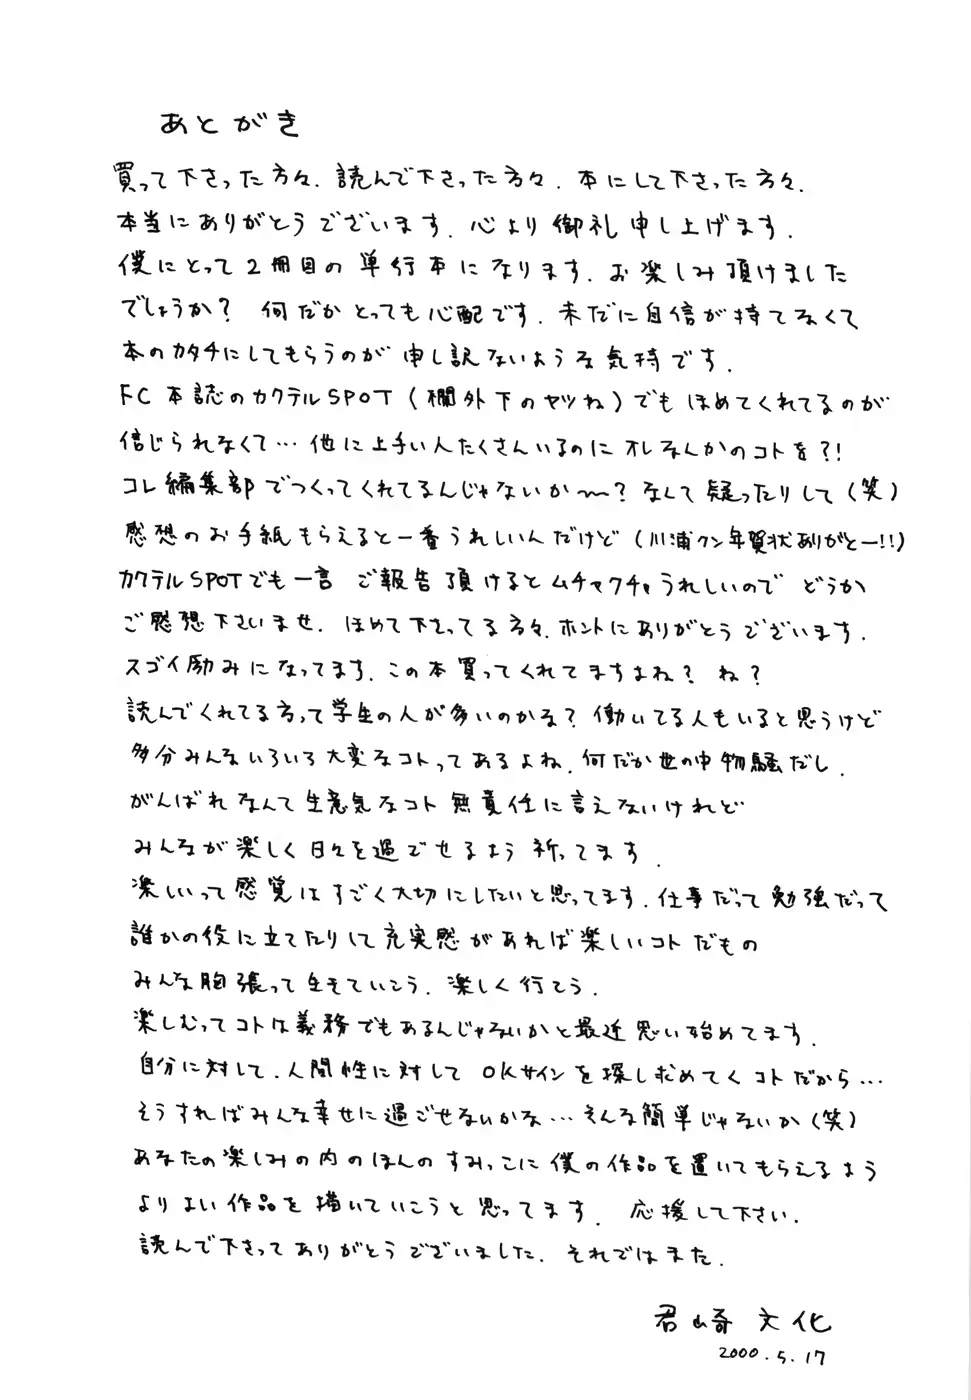 あとがき
買って下さった方々、読んで下さった方々、本にして下さった方々、
本当にありがとうございます。心より御礼申し上げます。
僕にとって2冊目の単行本になります。お楽しみ頂けました
でしょうか？ 何だかとっても心配です。未だに自信が持てなくて
本のカタチにしてもらうのが申し訳ないような気持です。
FC本誌のカクテルSPOT（欄外下のヤツね）でもほめてくれてるのが
信じられなくて…他に上手い人たくさんいるのにオレなんかのコトを？！
コレ編集部でつくってくれてるんじゃないか〜？なんて疑ったりして（笑）
感想のお手紙もらえると一番うれしいんだけど（川浦クン年賀状ありがとー!!）
カクテルSPOTでも一言 ご報告頂けるとムチャクチャうれしいので どうか
ご感想下さいませ。ほめて下さってる方々、ホントにありがとうございます。
スゴイ励みになってます。この本買ってくれてますよね？ ね？
読んでくれてる方って学生の人が多いのかな？働いてる人もいると思うけど
多分みんないろいろ大変なコトってあるよね。何だか世の中物騒だし。
がんばれなんて生意気なコト無責任に言えないけれど
みんなが楽しく日々を過ごせるよう祈ってます。
楽しいって感覚はすごく大切にしたいと思ってます。仕事だって勉強だって
誰かの役に立てたりして充実感があれば楽しいコトだもの
みんな胸張って生きていこう。楽しく行こう。
楽しむってコトは義務でもあるんじゃないかと最近思い始めてます。
自分に対して、人間性に対してOKサインを探し求めてくコトだから…
そうすればみんな幸せに過ごせないかな…そんな簡単じゃないか（笑）
あなたの楽しみの内のほんのすみっこに僕の作品を置いてもらえるよう
よりよい作品を描いていこうと思ってます。 応援して下さい。
読んで下さってありがとうございました。それではまた。
君崎 文化
2000.5.17